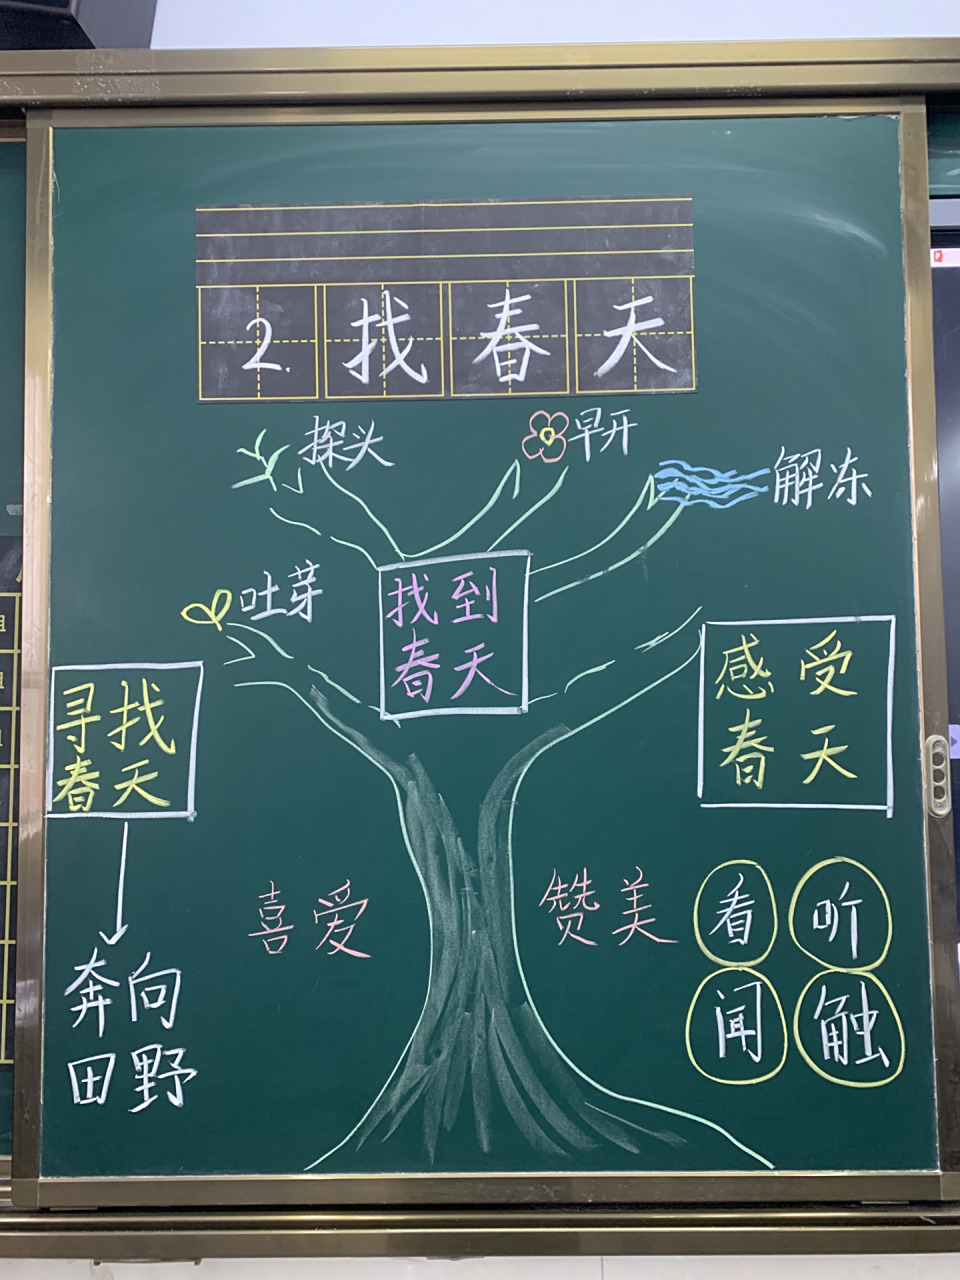 2. 找春天
探头
早开
解冻
吐芽
找到
春天
寻找
春天
感受
春天
喜爱
赞美
看 听
闻 触
奔向
田野
组
组